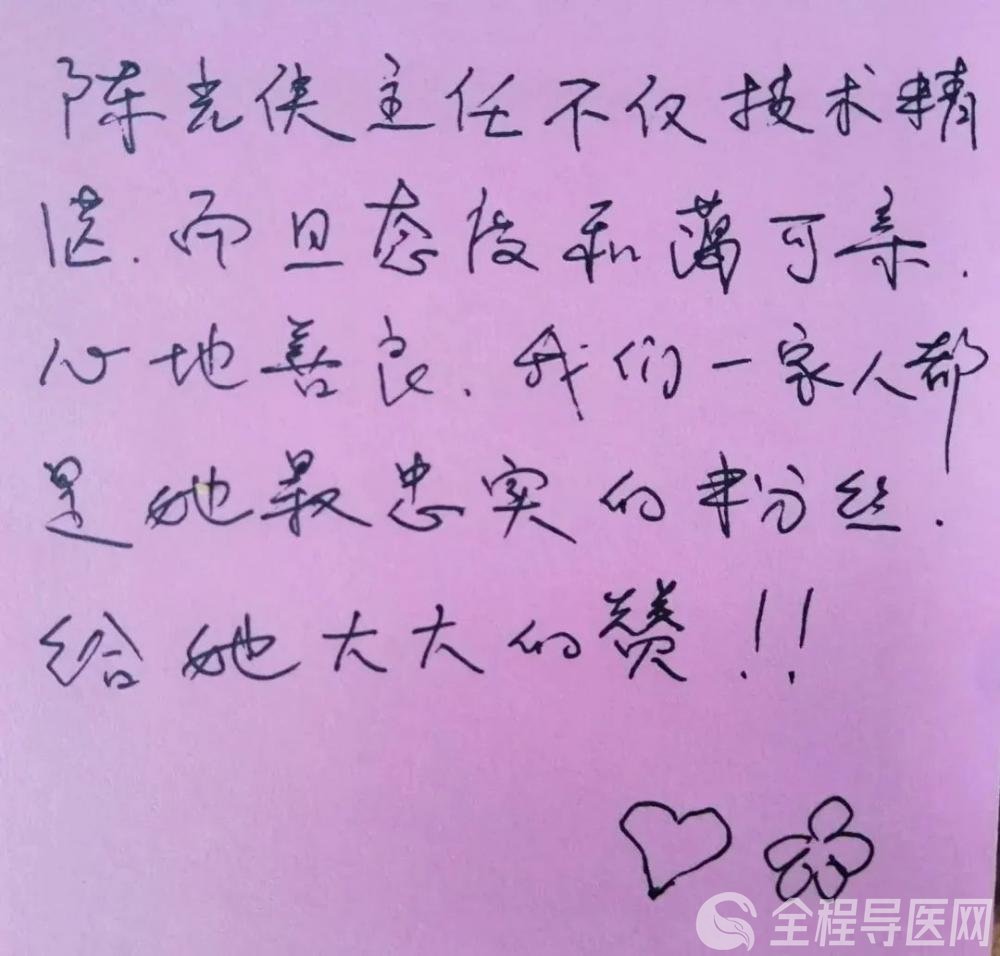 陈光侠主任不仅技术精
湛.而且态度和蔼可亲.
心地善良.我们一家人都
是她最忠实的粉丝.
给她大大的赞!!
全程导医网